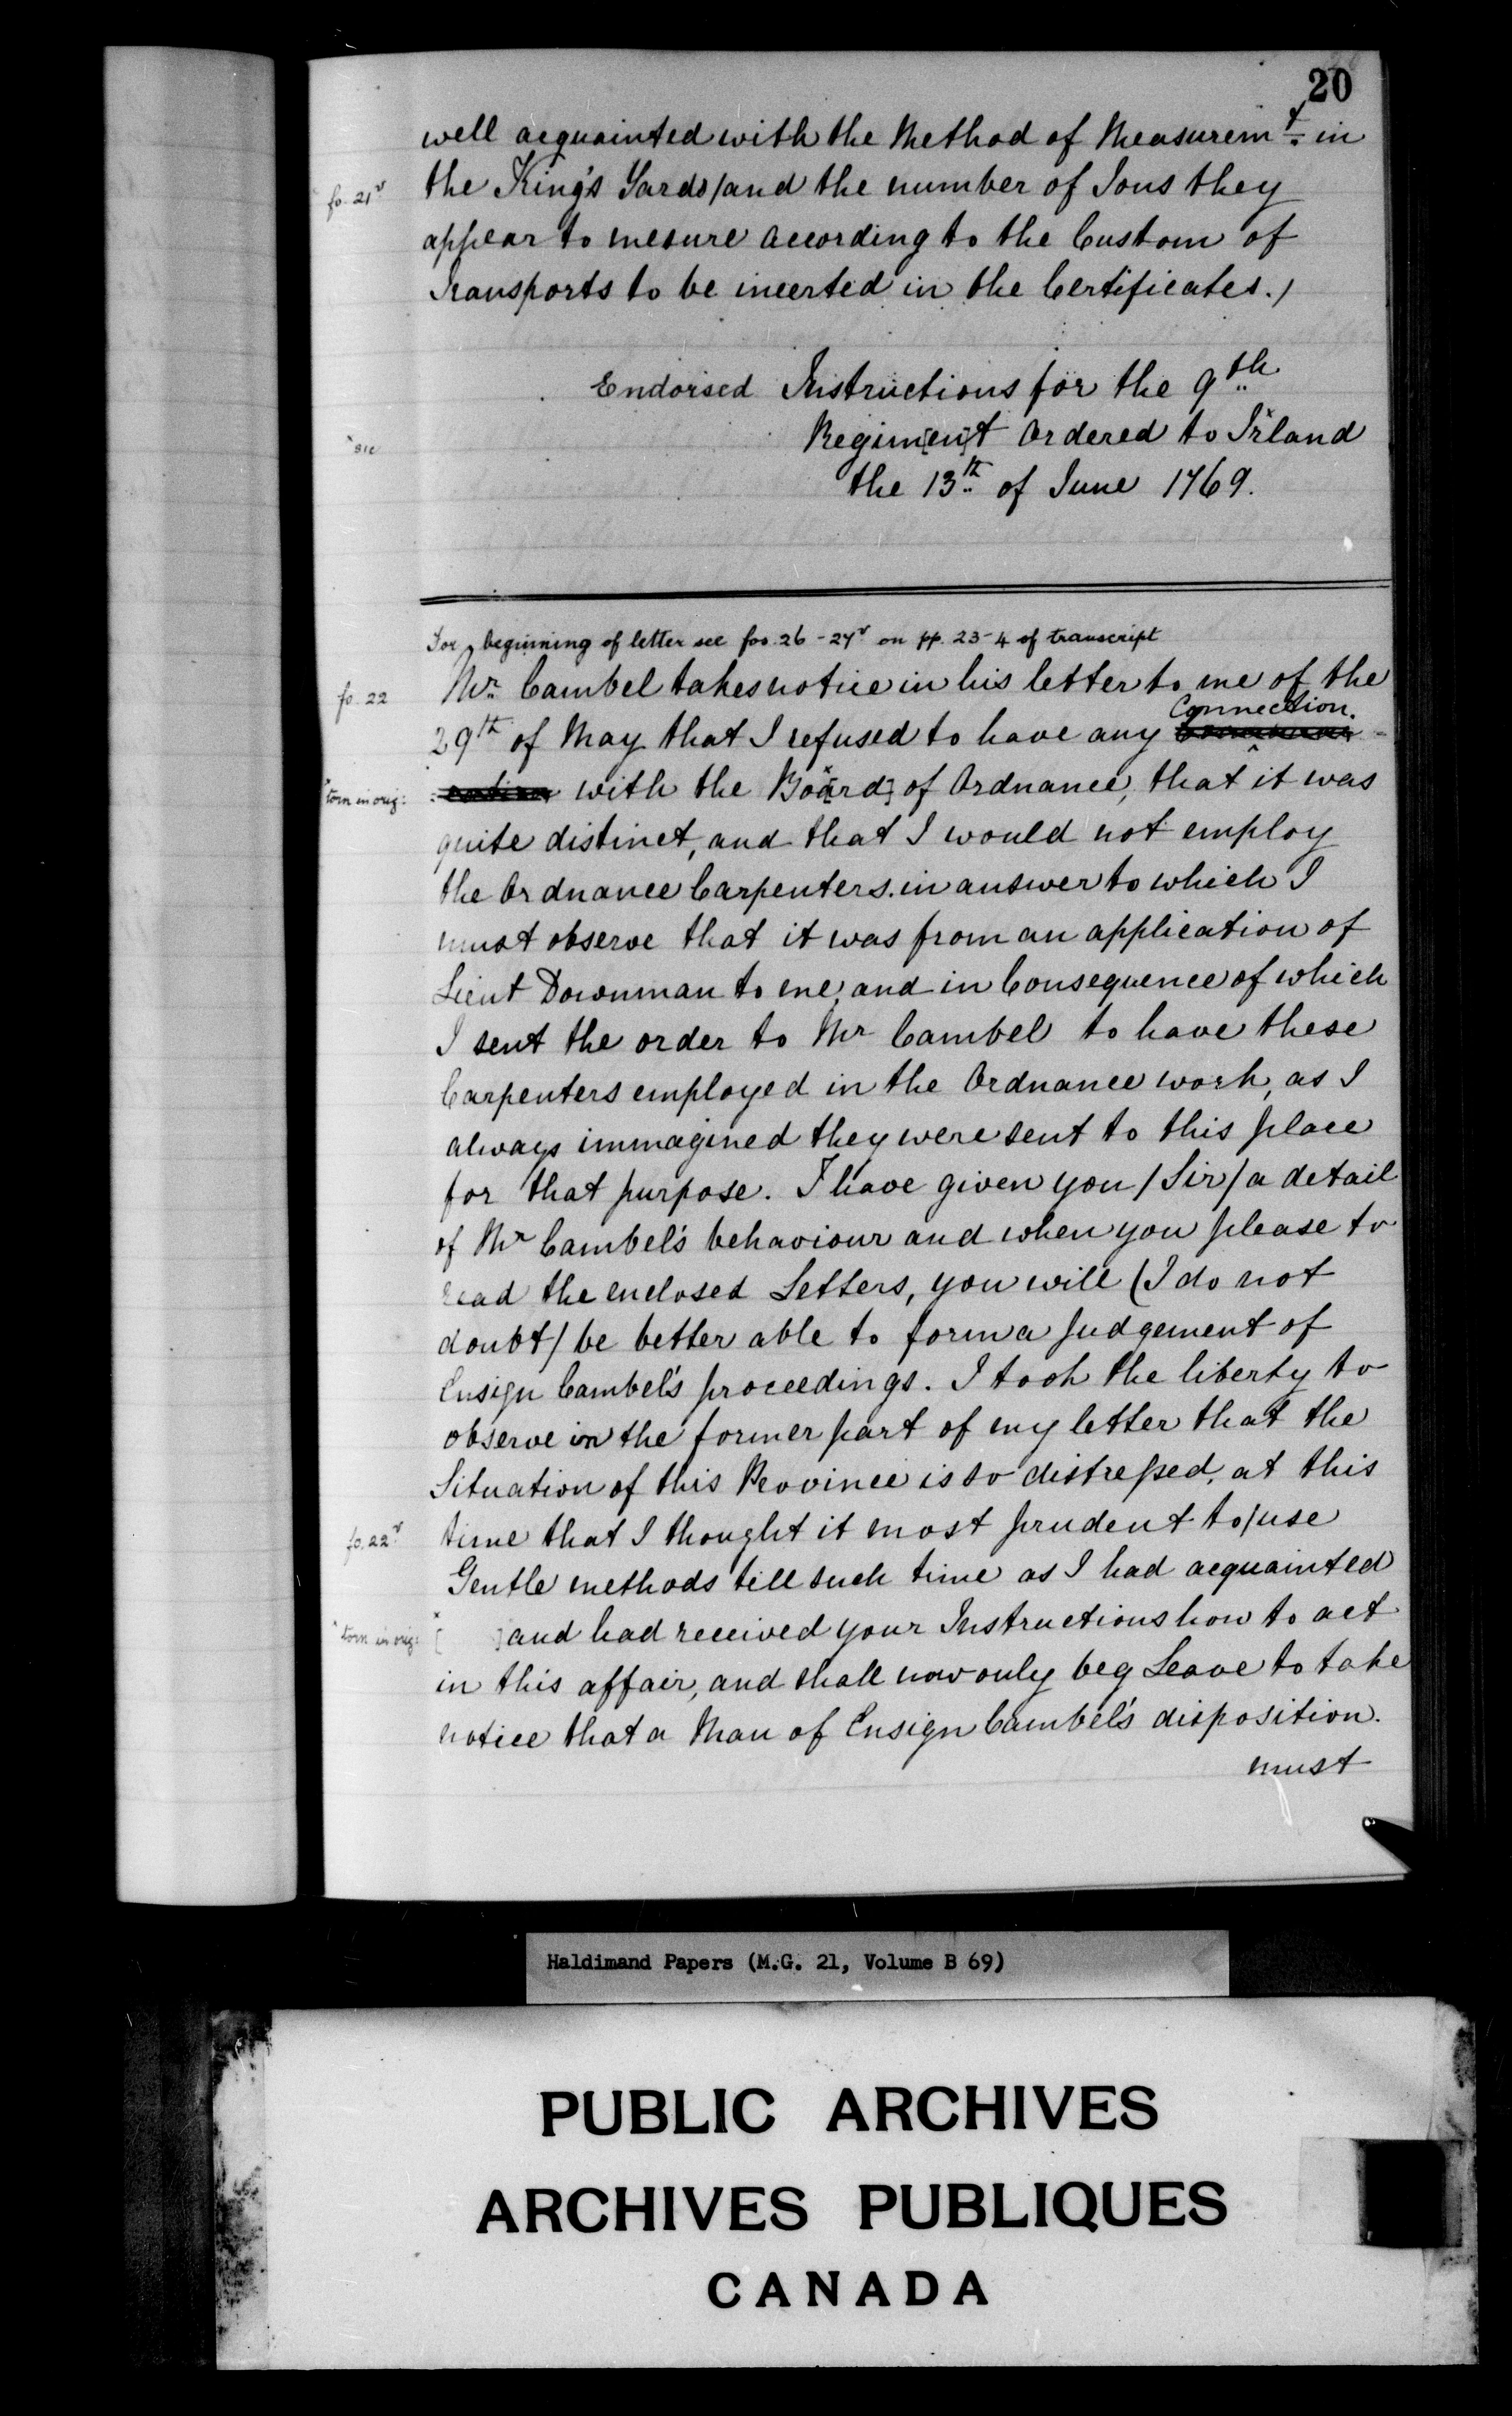 20
well acquainted with the Method of Measurem.t in
fo. 21v the King's Yards/and the number of Tons they
appear to mesure according to the Custom of
Transports to be incerted in the Certificates./
Endorsed Instructions for the 9th
*sic Regim[en]t Ordered to Ir*land
the 13th of June 1769.
For beginning of letter see fos. 26-27v on pp. 23-4 of transcript
fo. 22 Mr. Cambel takes notice in his letter to me of the
Connection.
29th of May that I refused to have any
*torn in orig: with the Bo*[ard] of Ordnance, that it was
quite distinct, and that I would not employ
the Ordnance Carpenters. in answer to which I
must observe that it was from an application of
Lieut Downman to me, and in Consequence of which
I sent the order to Mr Cambel to have these
Carpenters employed in the Ordnance work, as I
always immagined they were sent to this place
for that purpose. I have given you / Sir / a detail
of Mr Cambel's behaviour and when you please to
read the enclosed Letters, you will (I do not
doubt/ be better able to form a judgement of
Ensign Cambel's proceedings. I took the liberty to
observe in the former part of my letter that the
Situation of this Province is so distressed, at this
fo. 22v time that I thought it most prudent to/use
Gentle methods till such time as I had acquainted
*torn in orig: *[ ] and had received your Instructions how to act
in this affair, and shall now only beg Leave to take
notice that a Man of Ensign Cambel's disposition.
must
Haldimand Papers (M.G. 21, Volume B 69)
PUBLIC ARCHIVES
ARCHIVES PUBLIQUES
CANADA